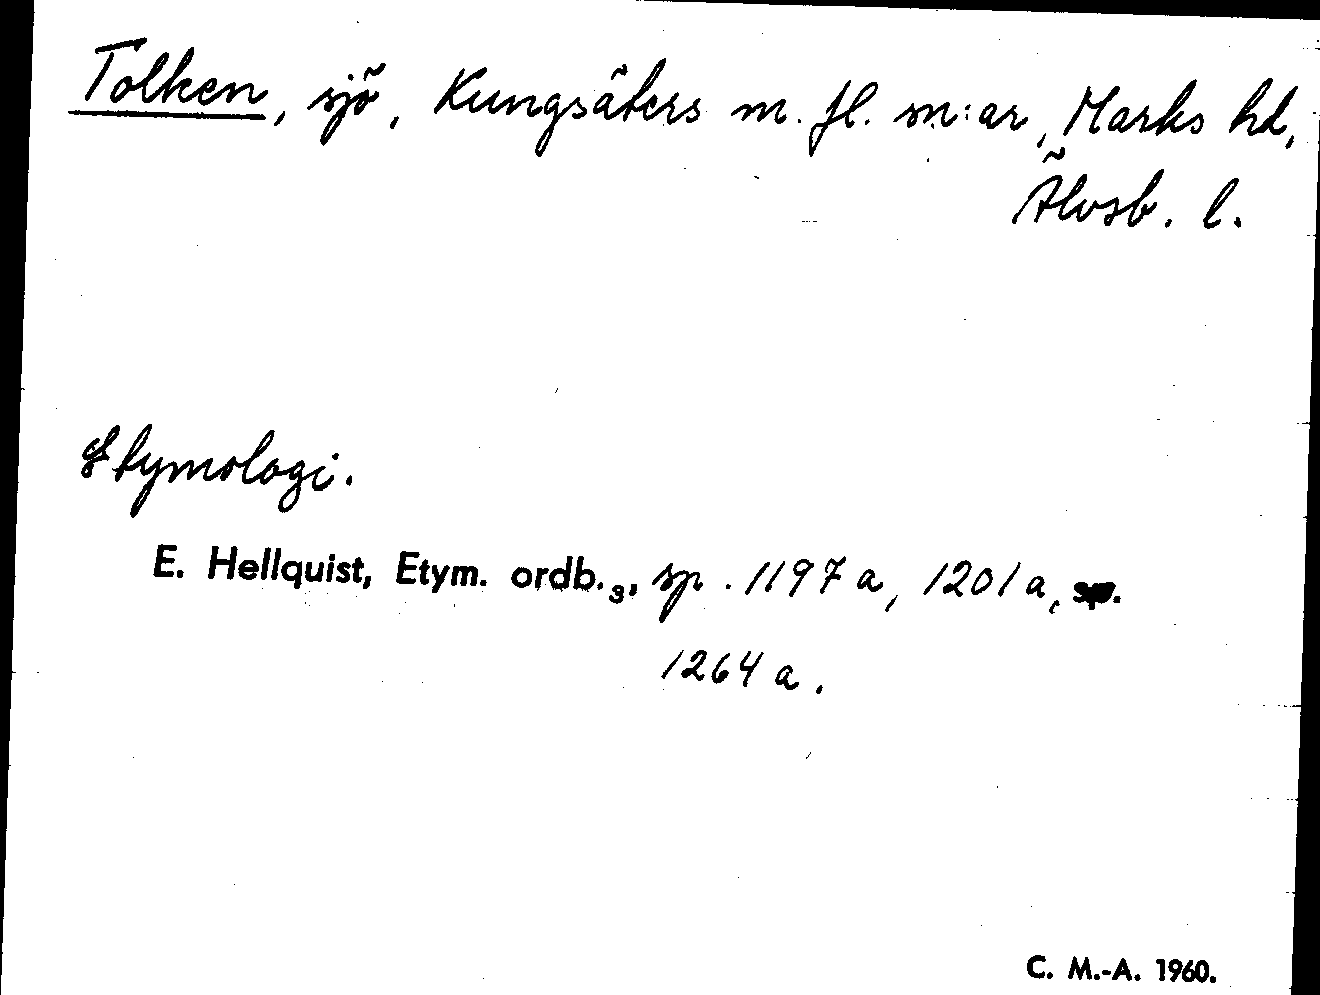 Tolken, sjö, Kungsäters m. fl. sn:ar, Marks hd,
Älvsb. l.
Etymologi.
E. Hellquist, Etym. ordb.₃, sp. 1197 a, 1201 a, sp.
1264 a.
C. M.-A. 1960.